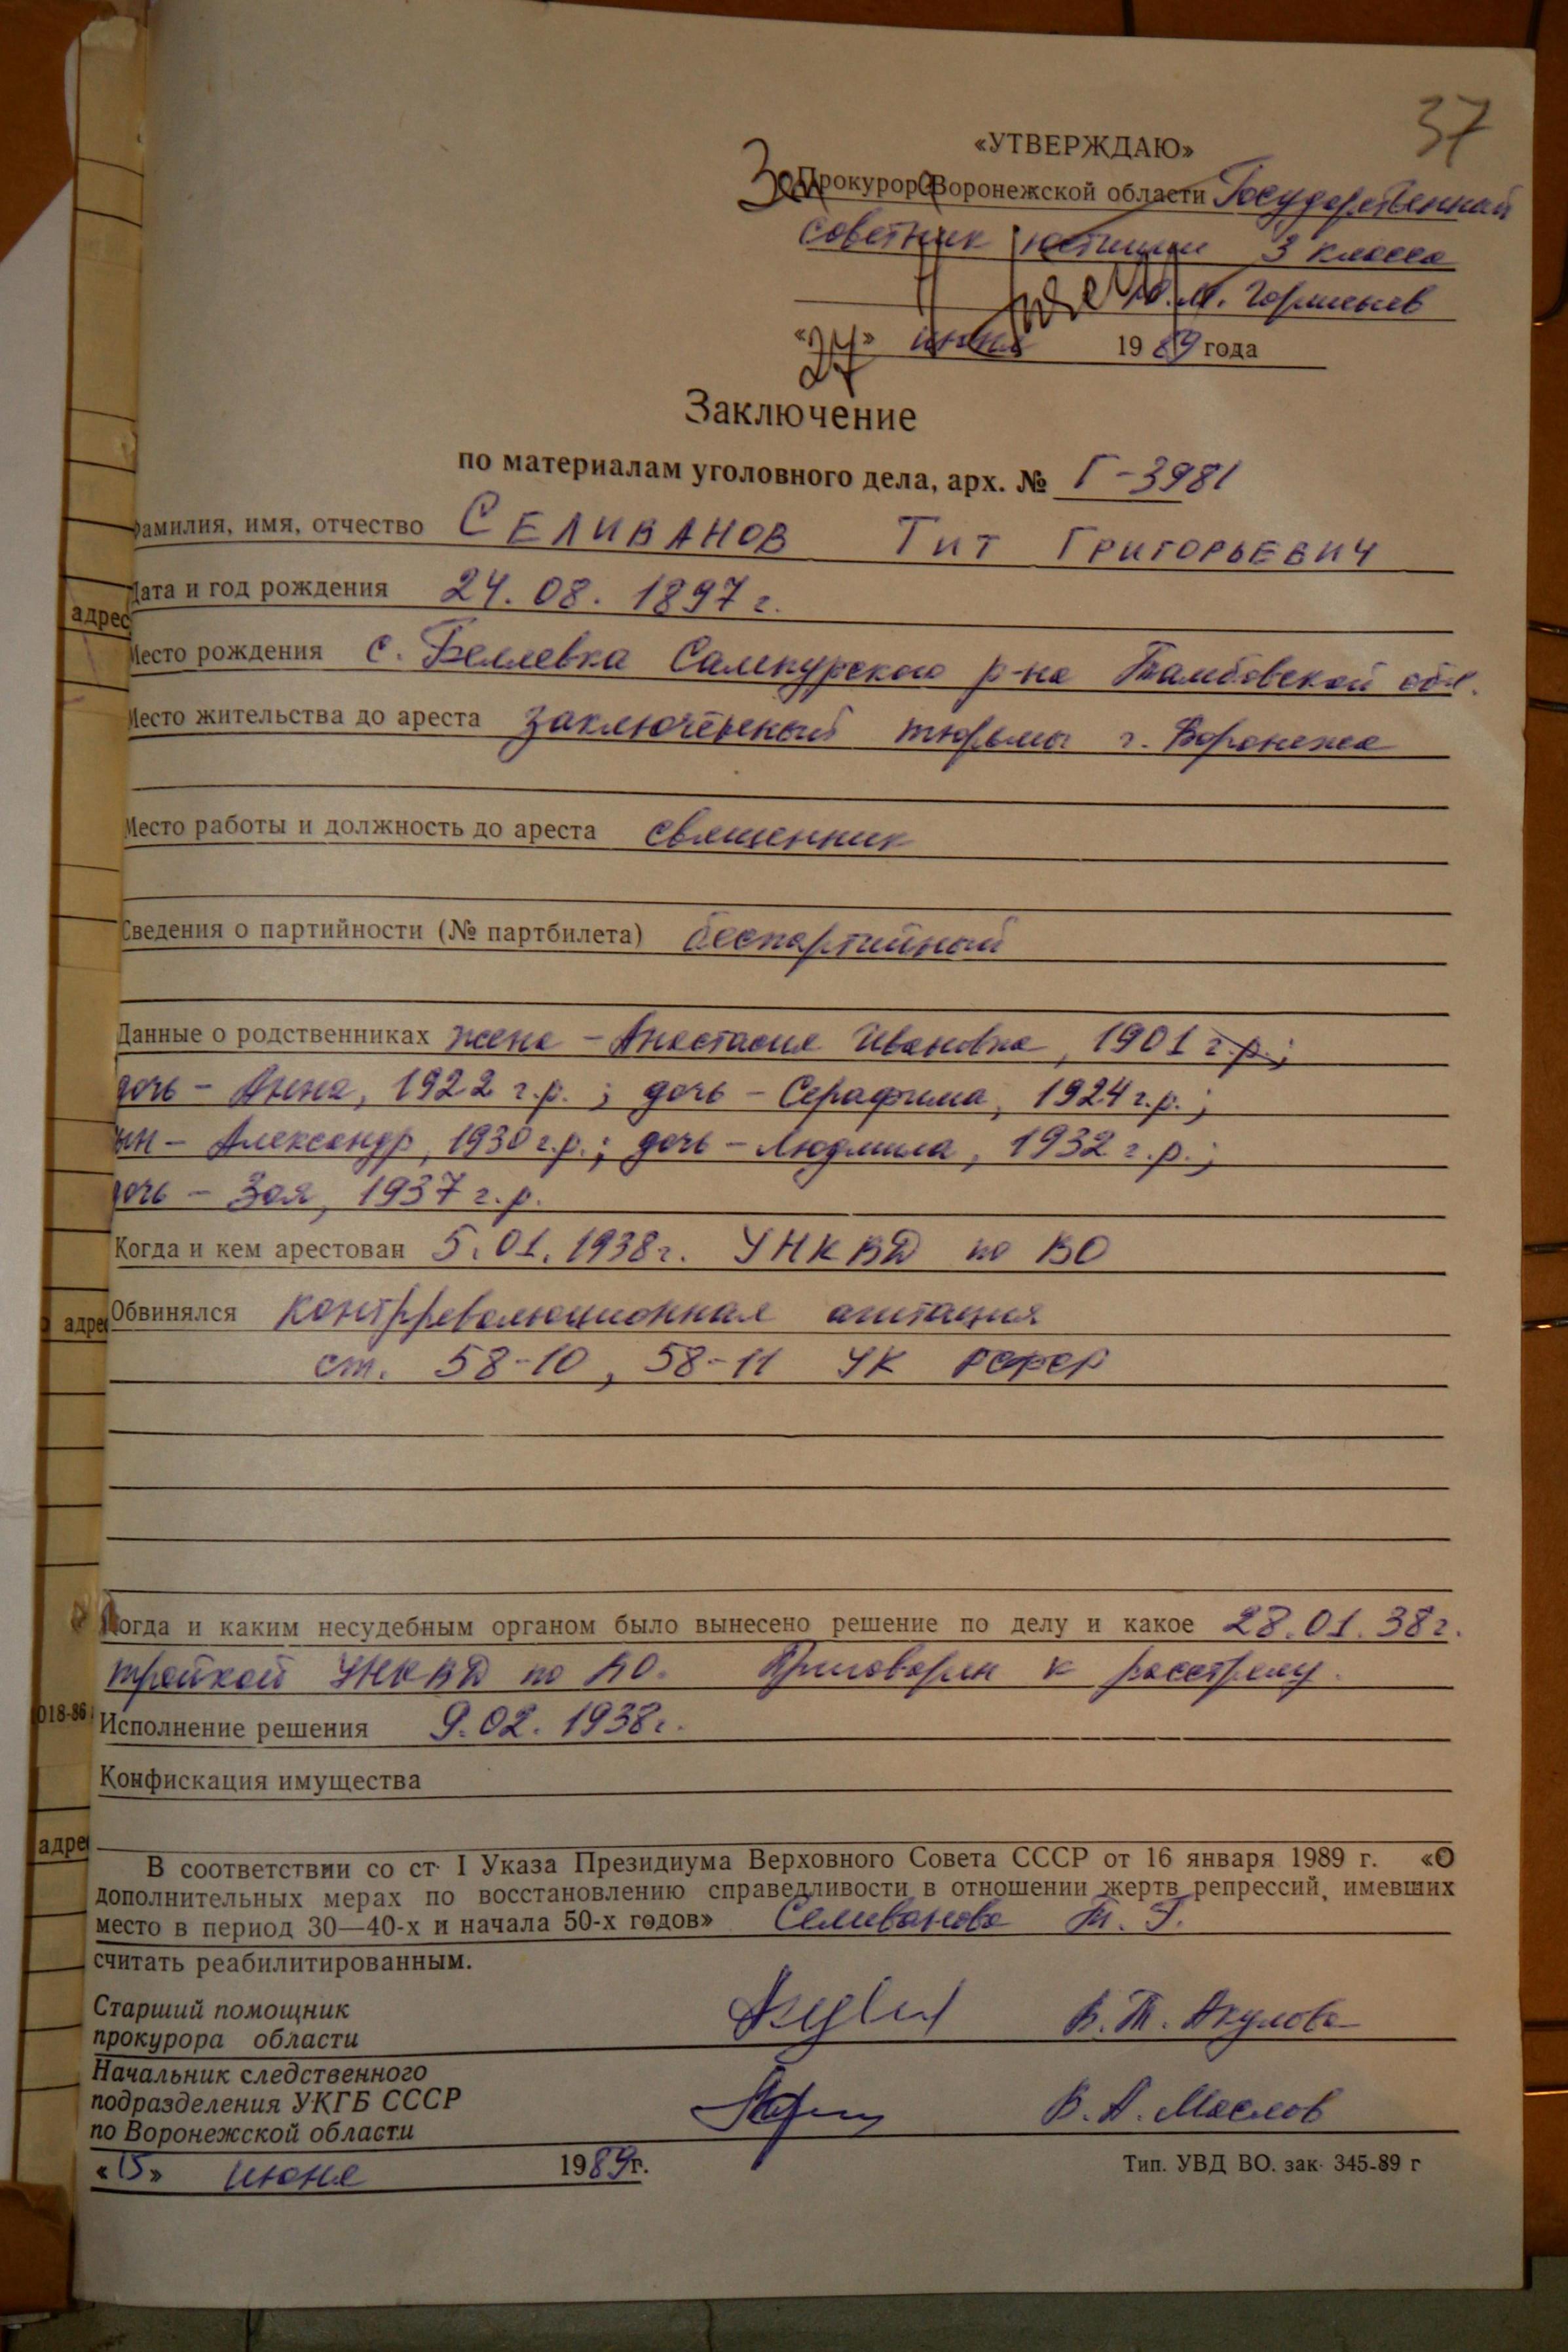 37
«УТВЕРЖДАЮ»
Зам Прокурора Воронежской области Государственный
советник юстиции 3 класса
Ю.М. Горшенев
«27» июня 1989 года
Заключение
по материалам уголовного дела, арх. № Г-3981
Фамилия, имя, отчество СЕЛИВАНОВ ТИТ ГРИГОРЬЕВИЧ
Дата и год рождения 24.08.1897 г.
адрес
Место рождения с. Беляевка Сампурского р-на Тамбовской обл.
Место жительства до ареста заключенный тюрьмы г. Воронежа
Место работы и должность до ареста священник
Сведения о партийности (№ партбилета) беспартийный
Данные о родственниках жена - Анастасия Ивановна, 1901 г.р.;
дочь - Анна, 1922 г.р.; дочь - Серафима, 1924 г.р.;
сын - Александр, 1930 г.р.; дочь - Людмила, 1932 г.р.;
дочь - Зоя, 1937 г.р.
Когда и кем арестован 5.01.1938 г. УНКВД по ВО
адрес
Обвинялся контрреволюционная агитация
ст. 58-10, 58-11 УК РСФСР
Когда и каким несудебным органом было вынесено решение по делу и какое 28.01.38 г.
тройкой УНКВД по ВО. Приговорен к расстрелу.
018-86
Исполнение решения 9.02.1938 г.
Конфискация имущества
адре
В соответствии со ст. I Указа Президиума Верховного Совета СССР от 16 января 1989 г. «О
дополнительных мерах по восстановлению справедливости в отношении жертв репрессий, имевших
место в период 30—40-х и начала 50-х годов» Селиванова Т. Г.
считать реабилитированным.
Старший помощник
прокурора области В. Т. Акулова
Начальник следственного
подразделения УКГБ СССР
по Воронежской области В. А. Маслов
«15» июня 1989 г.
Тип. УВД ВО. зак. 345-89 г